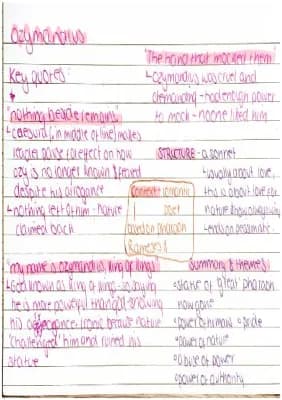 Ozymandius
Key quotes:
"nothing beside remains"
↳ caesura (in middle of line) makes
reader pause for effect on how
ozy is no longer known & feared
despite his arrogance
↳ nothing left of him - nature
claimed back
"my name is ozymandius, king of kings"
↳ God known as king of kings - so saying
he is more powerful than god - showing
his arrogance. Ironic because nature
'challenged' him and ruined his
statue
"The hand that mocked them"
↳ ozymandius was cruel and
demanding - had enough power
to mock - no one liked him
STRUCTURE - a sonnet
↳ usually about love,
this is about love for
nature & how always
↳ ends on pessimistic
Context: romantic
poet
based on pharaoh
Rameses II
Summary & themes
• statue of great pharaoh
now gone
• power of humans & pride
• power of nature
• abuse of power
• power of authority